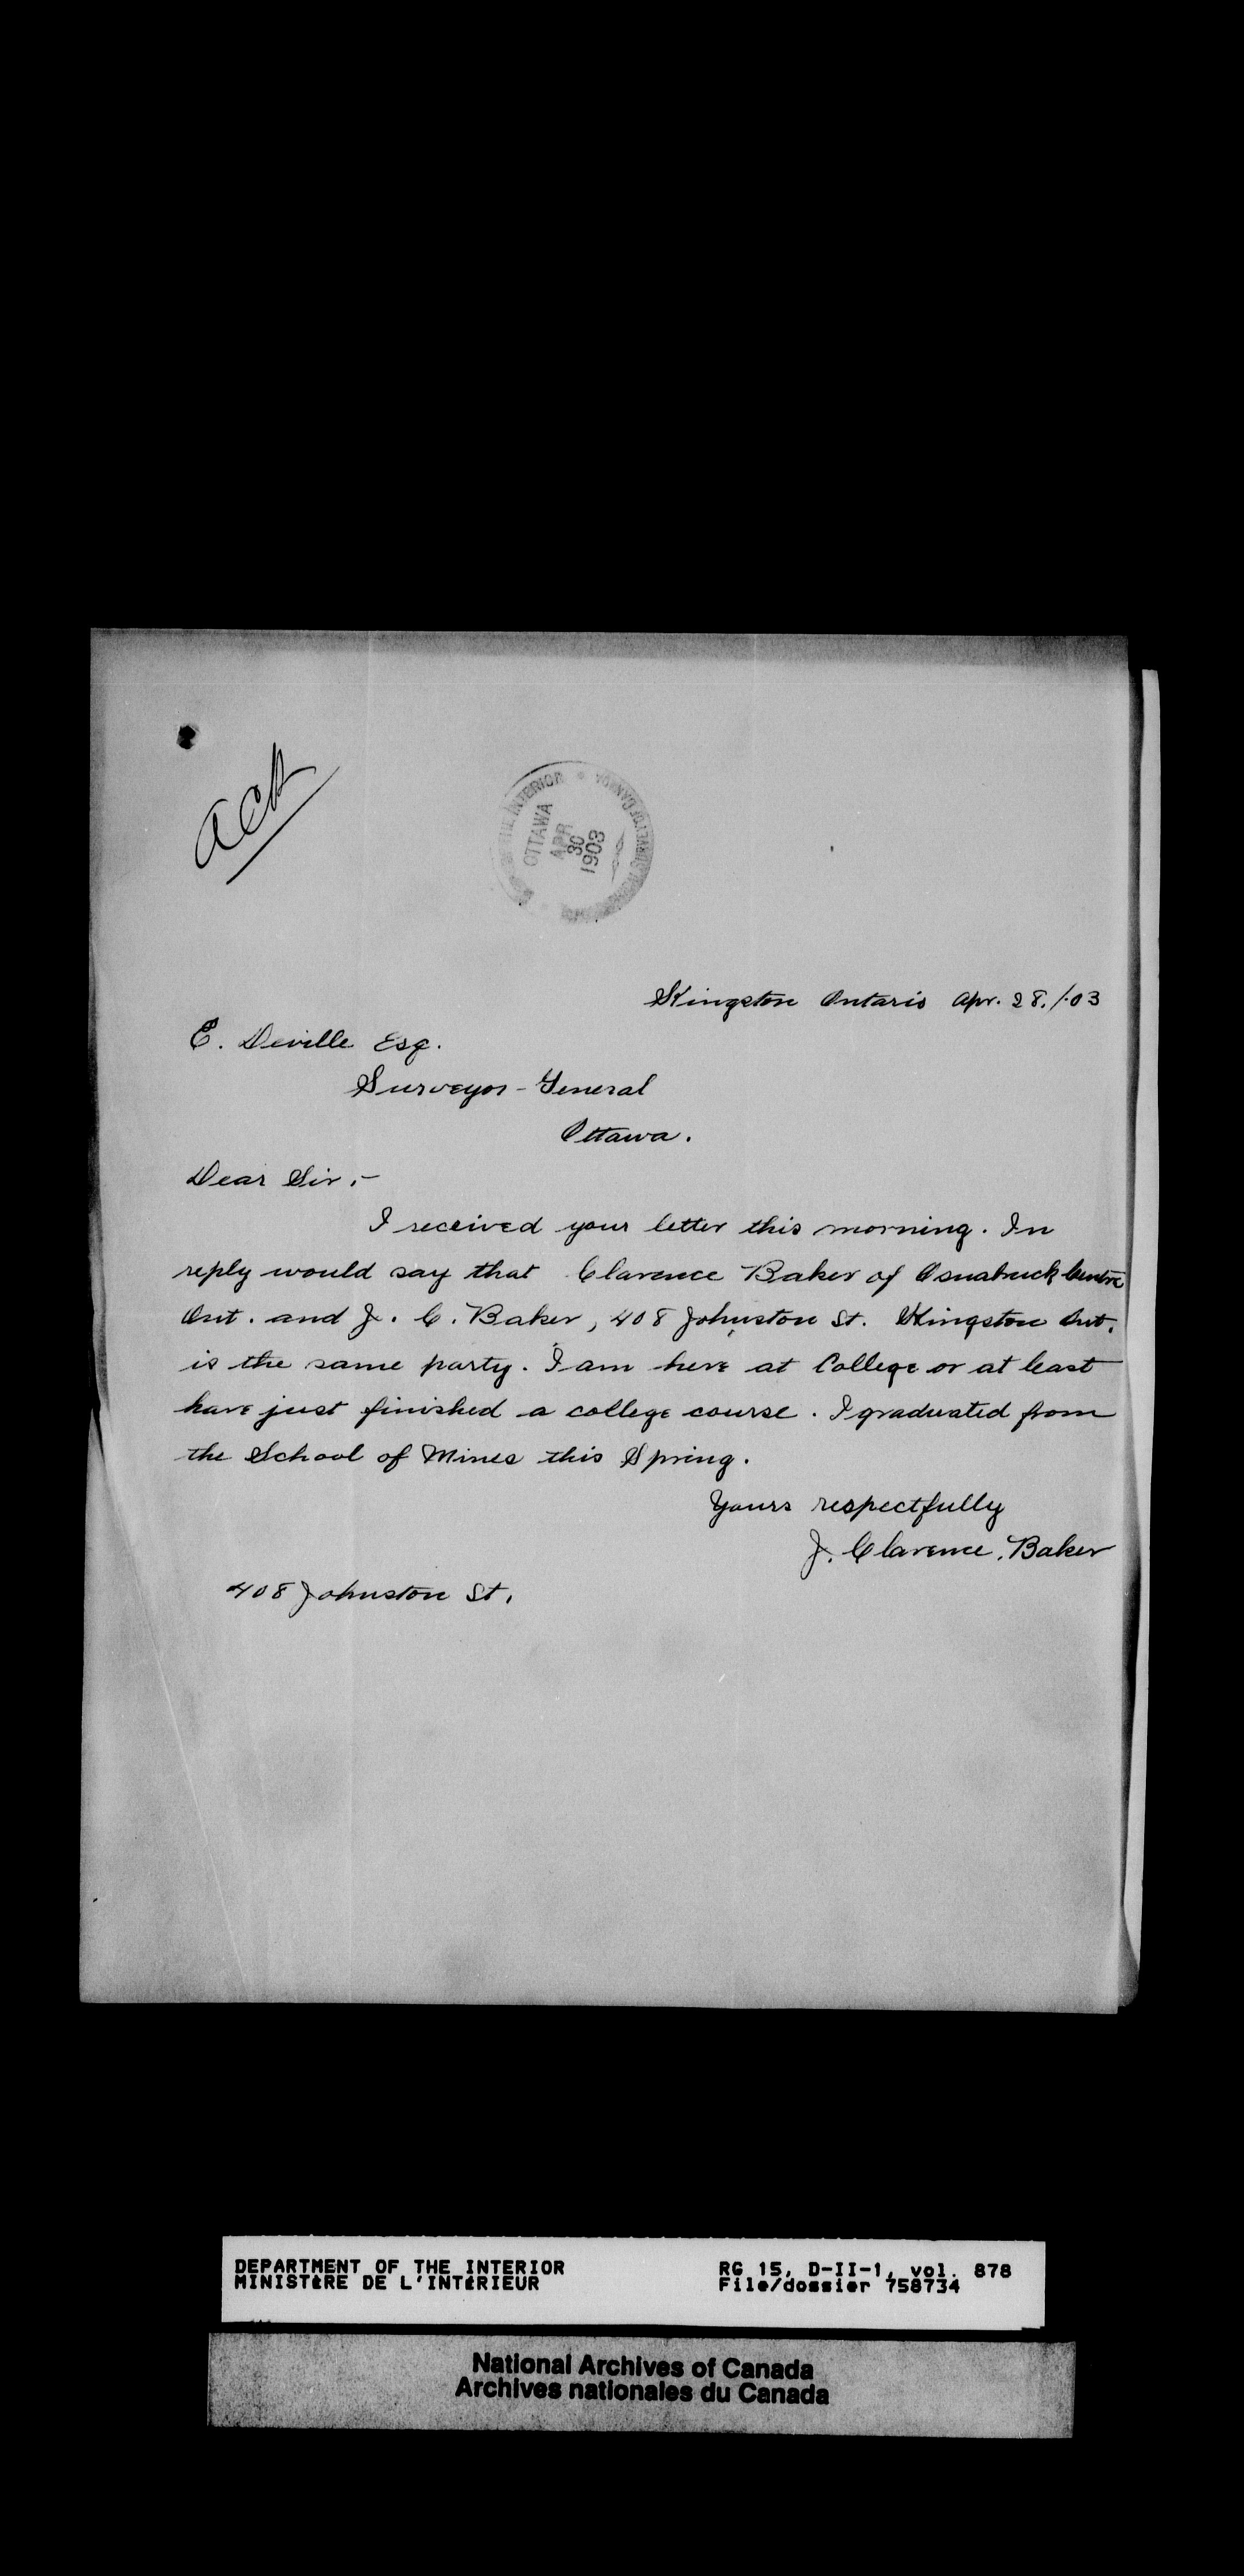 ack
INTERIOR
OTTAWA
APR
30
1903
Kingston Ontario Apr. 28./.03
E. Deville Esq.
Surveyor-General
Ottawa.
Dear Sir:-
I received your letter this morning. In
reply would say that Clarence Baker of Osnabruck Centre
Ont. and J. C. Baker, 408 Johnston St. Kingston Ont.
is the same party. I am here at College or at least
have just finished a college course. I graduated from
the School of Mines this Spring.
Yours respectfully
J. Clarence Baker
408 Johnston St.
DEPARTMENT OF THE INTERIOR
MINISTÈRE DE L'INTÉRIEUR
RG 15, D-II-1, vol. 878
File/dossier 758734
National Archives of Canada
Archives nationales du Canada